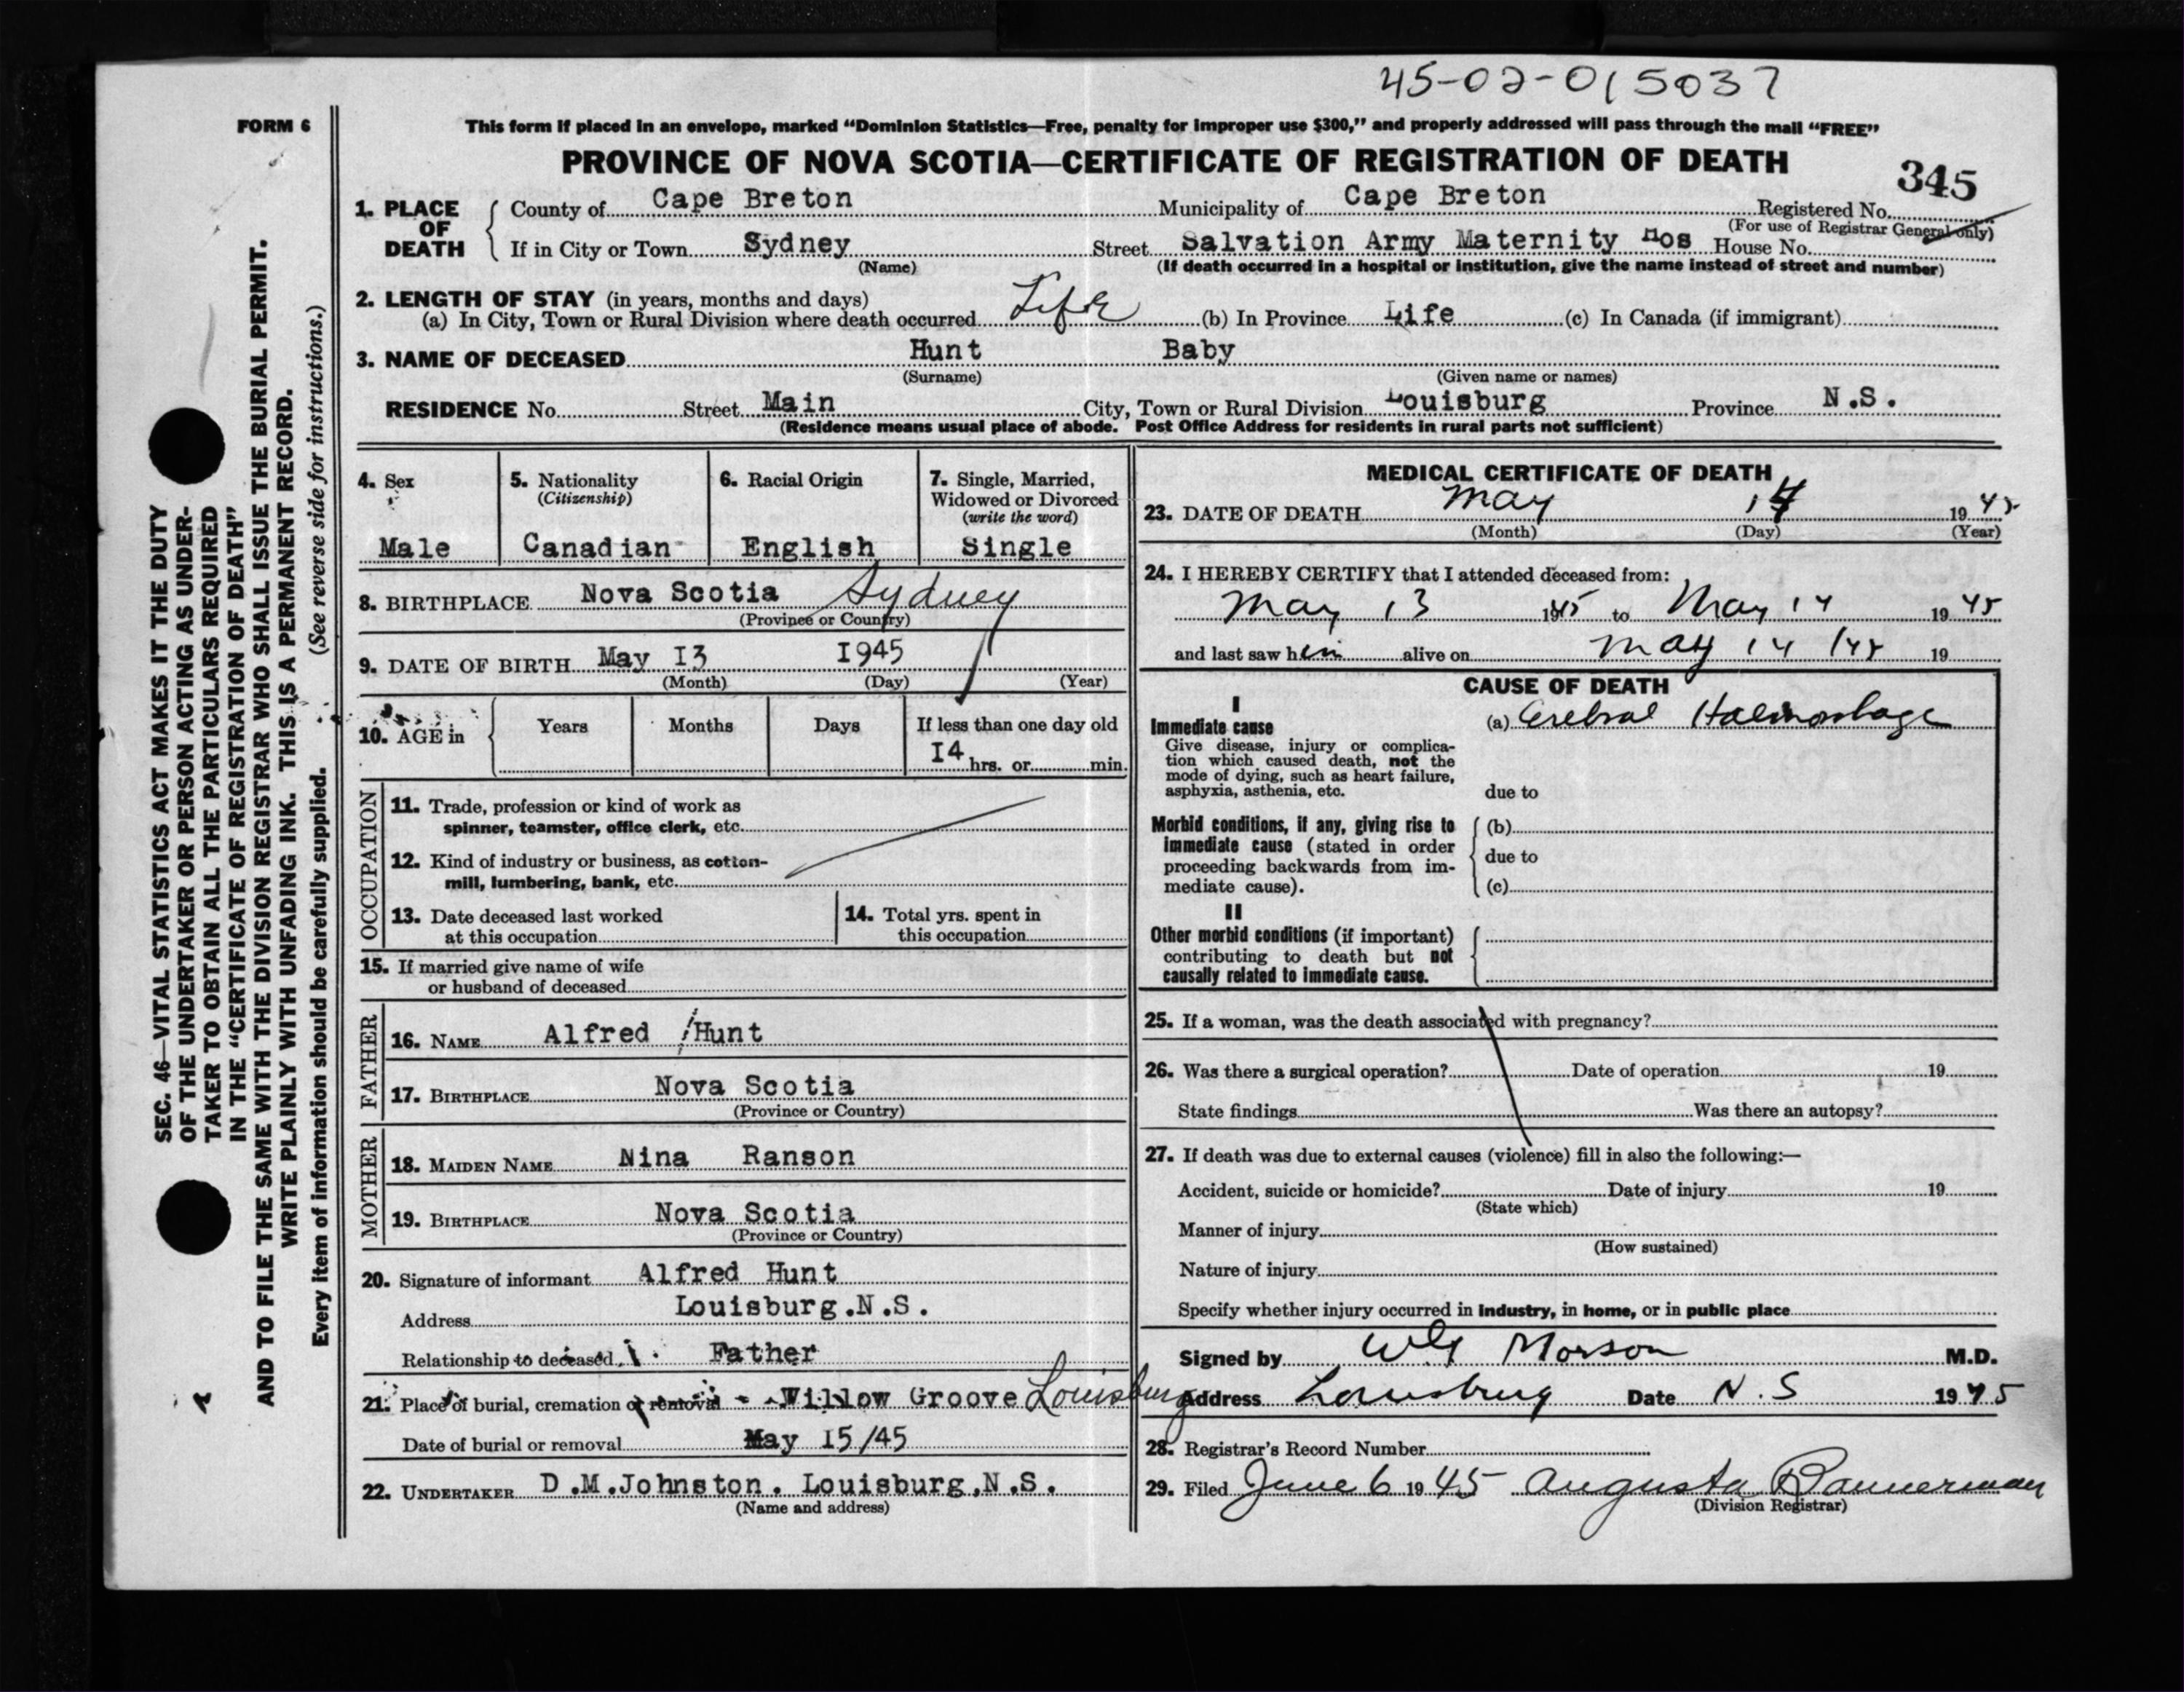 45-02-015037
FORM 6
This form if placed in an envelope, marked “Dominion Statistics—Free, penalty for improper use $300,” and properly addressed will pass through the mail “FREE”
PROVINCE OF NOVA SCOTIA—CERTIFICATE OF REGISTRATION OF DEATH
345
1. PLACE OF DEATH County of Cape Breton Municipality of Cape Breton Registered No.
(For use of Registrar General only)
If in City or Town Sydney Street Salvation Army Maternity Hos House No.
(Name) (If death occurred in a hospital or institution, give the name instead of street and number)
2. LENGTH OF STAY (in years, months and days)
(a) In City, Town or Rural Division where death occurred Life (b) In Province Life (c) In Canada (if immigrant)
3. NAME OF DECEASED Hunt Baby
(Surname) (Given name or names)
RESIDENCE No. Street Main City, Town or Rural Division Louisburg Province N.S.
(Residence means usual place of abode. Post Office Address for residents in rural parts not sufficient)
4. Sex 5. Nationality 6. Racial Origin 7. Single, Married,
(Citizenship) Widowed or Divorced
(write the word)
Male Canadian English Single
8. BIRTHPLACE Nova Scotia Sydney
(Province or Country)
9. DATE OF BIRTH May I3 I945
(Month) (Day) (Year)
10. AGE in Years Months Days If less than one day old
I4 hrs. or min.
OCCUPATION
11. Trade, profession or kind of work as
spinner, teamster, office clerk, etc.
12. Kind of industry or business, as cotton-
mill, lumbering, bank, etc.
13. Date deceased last worked
at this occupation
14. Total yrs. spent in
this occupation
15. If married give name of wife
or husband of deceased
FATHER
16. NAME Alfred Hunt
17. BIRTHPLACE Nova Scotia
(Province or Country)
MOTHER
18. MAIDEN NAME Nina Ranson
19. BIRTHPLACE Nova Scotia
(Province or Country)
20. Signature of informant Alfred Hunt
Address Louisburg.N.S.
Relationship to deceased Father
21. Place of burial, cremation or removal Willow Groove Louisburg
Date of burial or removal May I5/45
22. UNDERTAKER D.M.Johnston. Louisburg,N.S.
(Name and address)
MEDICAL CERTIFICATE OF DEATH
23. DATE OF DEATH May 14 1945
(Month) (Day) (Year)
24. I HEREBY CERTIFY that I attended deceased from:
May 13 1945 to May 14 1945
and last saw him alive on May 14 /45 19
CAUSE OF DEATH
I
Immediate cause (a) Cerebral Haemorrhage
Give disease, injury or complica-
tion which caused death, not the
mode of dying, such as heart failure,
asphyxia, asthenia, etc. due to
Morbid conditions, if any, giving rise to (b)
immediate cause (stated in order due to
proceeding backwards from im-
mediate cause). (c)
II
Other morbid conditions (if important)
contributing to death but not
causally related to immediate cause.
25. If a woman, was the death associated with pregnancy?
26. Was there a surgical operation? Date of operation 19
State findings Was there an autopsy?
27. If death was due to external causes (violence) fill in also the following:—
Accident, suicide or homicide? Date of injury 19
(State which)
Manner of injury
(How sustained)
Nature of injury
Specify whether injury occurred in industry, in home, or in public place
Signed by Morson M.D.
Address Louisburg Date N.S 1945
28. Registrar's Record Number
29. Filed June 6 1945 Augusta Bannerman
(Division Registrar)
SEC. 46—VITAL STATISTICS ACT MAKES IT THE DUTY
OF THE UNDERTAKER OR PERSON ACTING AS UNDER-
TAKER TO OBTAIN ALL THE PARTICULARS REQUIRED
IN THE “CERTIFICATE OF REGISTRATION OF DEATH”
AND TO FILE THE SAME WITH THE DIVISION REGISTRAR WHO SHALL ISSUE THE BURIAL PERMIT.
WRITE PLAINLY WITH UNFADING INK. THIS IS A PERMANENT RECORD.
Every item of information should be carefully supplied. (See reverse side for instructions.)